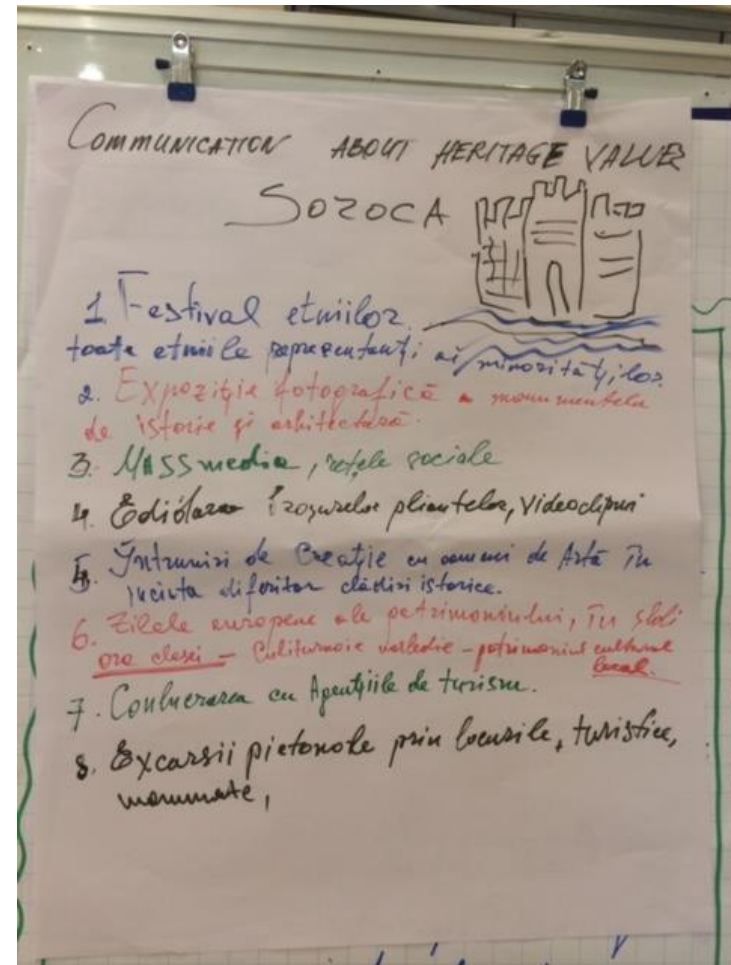 COMMUNICATION ABOUT HERITAGE VALUES
SOROCA
1. Festival etniilor.
toate etniile reprezentanți ai minorităților.
2. Expoziție fotografică a monumentelor
de istorie și arhitectură.
3. MASS media, rețele sociale
4. broșurelor pliantelor, videoclipuri
5. Întruniri de Creație cu oameni de Artă în
incinta diferitor clădiri istorice.
6. Zilele europene ale patrimoniului, în școli
ora clasei – - patrimoniul cultural
local.
7. cu Agențiile de turism.
8. Excursii pietonale prin locurile, turistice,